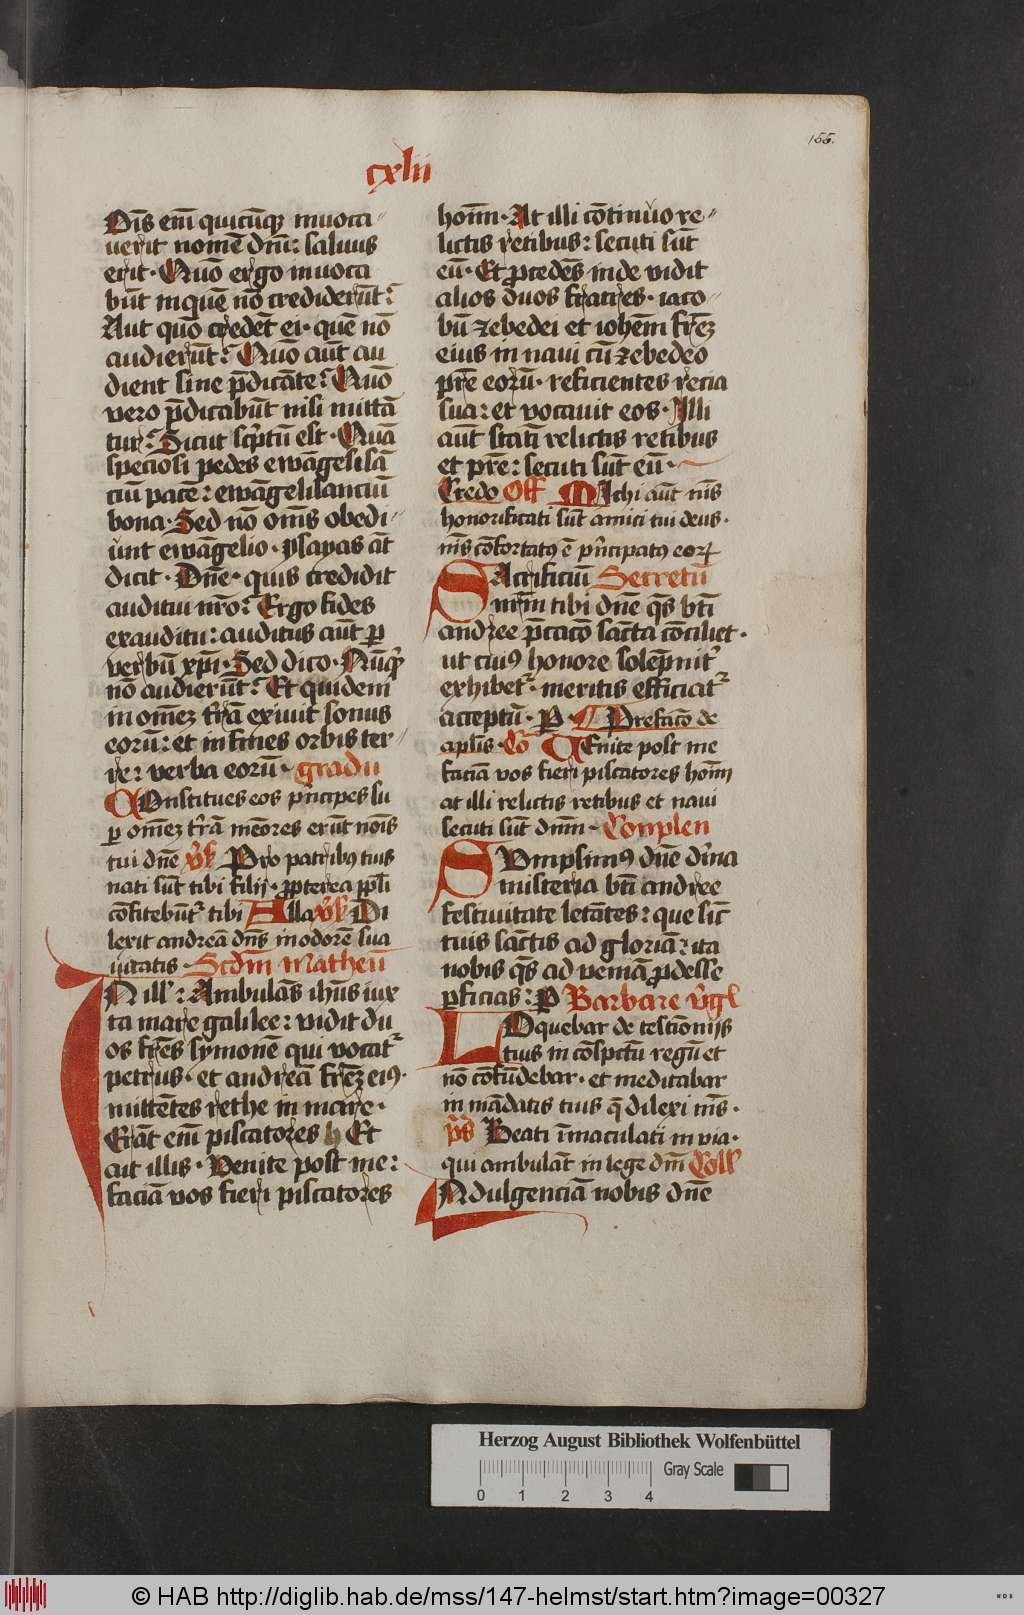 155.
cxlii
Oīs em̄ quicūq₃ inuoca״
uerit nomē dm̄: saluus
erit · Quō ergo inuoca
būt inquē nō crediderūt?
Aut quō credēt ei · quē nō
audierūt? Quō aūt au
dient sine p̄dicāte? Quō
vero p̄dicabūt nisi mittā
tur? Sicut sc̄ptū est · Quā
speciosi pedes ewāgelisā
ciū pacē: ewāgelisanciū
bona · Sed nō om̄s obedi״
ūnt ewāgelio · ysayas āt
dicit · Dn̄e · quis credidit
auditui nr̄o? Ergo fides
exauditu: auditus aūt ꝑ
verbū xp̄i · Sed dico · Nūq̄ꝫ
nō audierūt? Et quidem
in om̄eꝫ tr̄ā exiuit sonus
eorū: et in fines orbis ter״
re: verba eorū · gradu
COnstitues eos pⁱncipes su
ꝑ om̄eꝫ tr̄ā mēores erūt nōis
tui dn̄e v̄s Pro patribꝰ tuis
nati sūt tibi filij · ꝓpterea pp̄li
cōfitebūt᷑ tibi Alla v̄s Di
lexit andreā dn̄s in odorē sua
uitatis · Scd̄m Matheū
IN ill᷑: Ambulās ihūs iux
ta mare galilee: vidit du
os fr̄es symonē qui vocat᷑
petrus · et andreā fr̄eꝫ eiꝰ ·
mittētes rethe in mare ·
Erāt em̄ piscatores h Et
ait illis · Venite post me:
faciā vos fieri piscatores
hoīm · At illi cōtinuo re״
lictis retibus: secuti sūt
eū · Et ꝓcedēs inde vidit
alios duos fratres · iaco״
bū zebedei et ioh̄em fr̄eꝫ
eius in naui cū zebedeo
pr̄e eorū · reficientes recia
sua: et vocauit eos · Illi
aūt statī relictis retibus
et pr̄e: secuti sūt eū ·
Credo Off MIchi aūt nīs
honorificati sūt amici tui deus ·
nīs cōfortatꝰ ē pⁱncipatꝰ eoꝝ
SAcrificiū Secretū
nr̄m tibi dn̄e q̄s bt̄i
andree p̄cacō sācta cōciliet ·
ut cuiꝰ honore solēpnit᷑
exhibet᷑ · meritis efficiat᷑
acceptū · P · ¶ Prefacō de
apl̄is · Cō VEnite post me
faciā vos fieri piscatores hoīm
at illi relictis retibus et naui
secuti sūt dn̄m · Conplen
SVmpsimꝰ dn̄e dⁱina
misteria bt̄i andree
festiuitate letātes: que sic̄
tuis sāctis ad gloriā: ita
nobis q̄s ad veniā ꝓdesse
ꝑficias: P Barbare v̄gⁱs
LOquebar de testīonijs
tuis in cōspctū regū et
nō cōfūdebar · et meditabar
in mādatis tuis q̄ dilexi nīs ·
p̄s Beati īmaculati in via ·
qui ambulāt in lege dn̄i Coll᷑
INdulgenciā nobis dn̄e
Herzog August Bibliothek Wolfenbüttel
Gray Scale
0 1 2 3 4
© HAB http://diglib.hab.de/mss/147-helmst/start.htm?image=00327
WDB